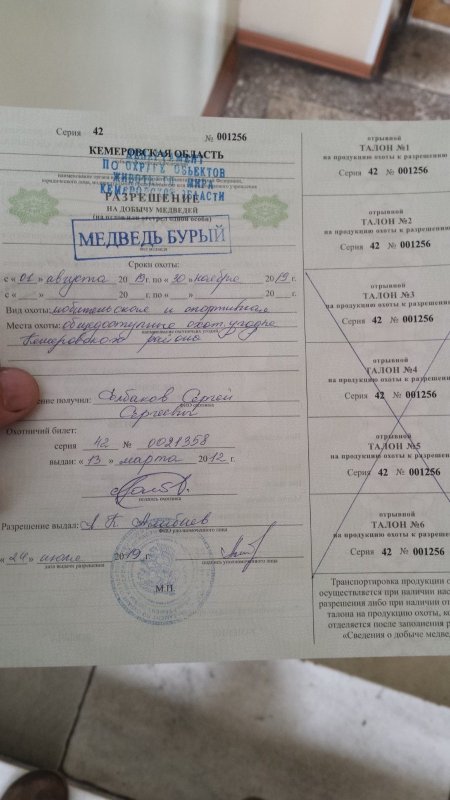 Серия 42 № 001256
КЕМЕРОВСКАЯ ОБЛАСТЬ
ДЕПАРТАМЕНТ
ПО ОХРАНЕ ОБЪЕКТОВ
ЖИВОТНОГО МИРА
КЕМЕРОВСКОЙ ОБЛАСТИ
РАЗРЕШЕНИЕ
НА ДОБЫЧУ МЕДВЕДЕЙ
(на отлов или отстрел одной особи)
МЕДВЕДЬ БУРЫЙ
вид медведя
Сроки охоты:
с «01» августа 2019 г. по «30» ноября 2019
с «___» ___ 20__ г. по «___» ___ 20__ г.
Вид охоты: любительская и спортивная
Места охоты: общедоступные охот. угодья
наименование охотничьих угодий
Кемеровского района
ение получил: Сергей
ФИО охотника
Сергеевич
Охотничий билет:
серия 42 № 0021358
выдан: «13» марта 2012 г.
подпись охотника
Разрешение выдал: А К
ФИО уполномоченного лица
«24» июля 2019 г.
дата выдачи разрешения подпись уполномоченного лица
М.П.
отрывной
ТАЛОН №1
на продукцию охоты к разрешению
Серия 42 № 001256
отрывной
ТАЛОН №2
на продукцию охоты к разрешению
Серия 42 № 001256
отрывной
ТАЛОН №3
на продукцию охоты к разрешению
Серия 42 № 001256
отрывной
ТАЛОН №4
на продукцию охоты к разрешению
Серия 42 № 001256
отрывной
ТАЛОН №5
на продукцию охоты к разрешению
Серия 42 № 001256
отрывной
ТАЛОН №6
на продукцию охоты к разрешению
Серия 42 № 001256
Транспортировка продукции о
осуществляется при наличии нас
разрешения либо при наличии от
талона на продукцию охоты, ко
отделяется после заполнения р
«Сведения о добыче медве